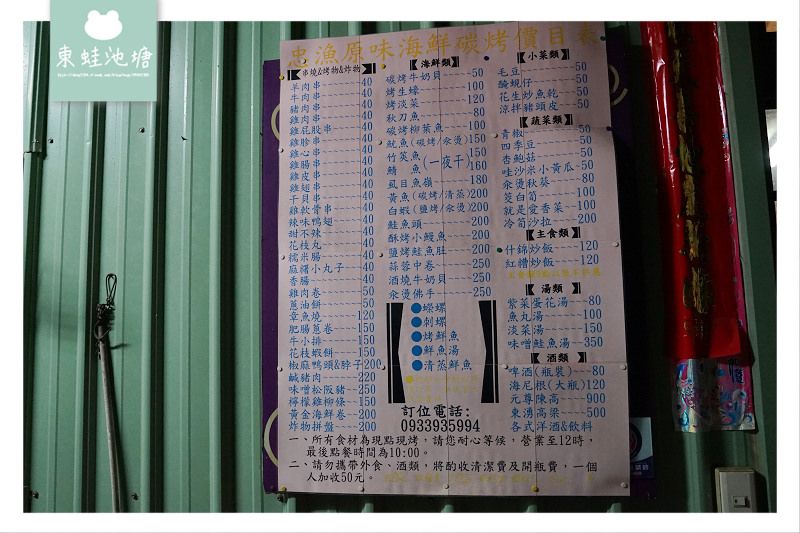 東蛙池塘
忠漁原味海鮮碳烤價目表
【串燒&烤物&炸物】
羊肉串-----40
牛肉串-----40
豬肉串-----40
雞肉串-----40
雞屁股串-----40
雞胗串-----40
雞心串-----40
雞腸串-----40
雞皮串-----40
雞翅串-----40
干貝串-----40
雞軟骨串-----40
辣味鴨翅-----40
甜不辣-----40
花枝丸-----40
糯米腸-----40
麻糬小丸子-----40
香腸-----40
雞肉卷-----50
蔥油餅-----50
章魚燒-----120
肥腸蔥卷-----150
牛小排-----150
花枝蝦餅-----150
椒麻鴨頭&脖子200
鹹豬肉-----220
味噌松阪豬--250
檸檬雞柳條--150
黃金海鮮卷--200
炸物拼盤---200
【海鮮類】
碳烤牛奶貝-----50
烤生蠔-----100
烤淡菜-----120
秋刀魚-----80
碳烤柳葉魚-----100
魷魚(碳烤/汆燙)150
竹筴魚(一夜干)150
鯖　魚(一夜干)180
虱目魚嶺-----180
黃魚(碳烤/清蒸)200
白蝦(鹽烤/汆燙)200
鮭魚頭-----200
酥烤小鰻魚-----200
鹽烤鮭魚肚-----200
蒜蓉中卷-----250
酒燒牛奶貝-----250
汆燙佛手-----250
●蠑螺
●刺螺
●烤鮮魚
●鮮魚湯
●清蒸鮮魚
訂位電話:
0933935994
【小菜類】
毛豆-----50
醃蜆仔-----50
花生炒魚乾---50
涼拌豬頭皮---50
【蔬菜類】
青椒-----50
四季豆-----50
杏鮑菇-----50
哇沙米小黃瓜-50
汆燙秋葵-----80
筊白筍-----100
就是愛香菜--100
冷筍沙拉----200
【主食類】
什錦炒飯---120
紅糟炒飯---120
【湯類】
紫菜蛋花湯---80
魚丸湯-----100
淡菜湯-----150
味噌鮭魚湯--350
【酒類】
啤酒(瓶裝)--80
海尼根(大瓶)120
元尊陳高----900
東湧高粱----500
各式洋酒&飲料
一、所有食材為現點現烤，請您耐心等候，營業至12時，
最後點餐時間為10:00。
二、請勿攜帶外食、酒類，將酌收清潔費及開瓶費，一個
人加收50元。